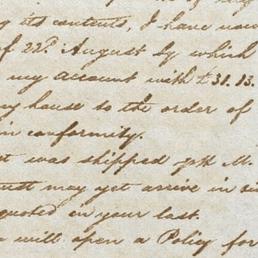 its contents, I have now
of 22d. August by which
my account with £31.13.
my house to the order of
in conformity.
t was shipped pr the M.
ust may yet arrive in
quoted in your last.
will open a Policy for